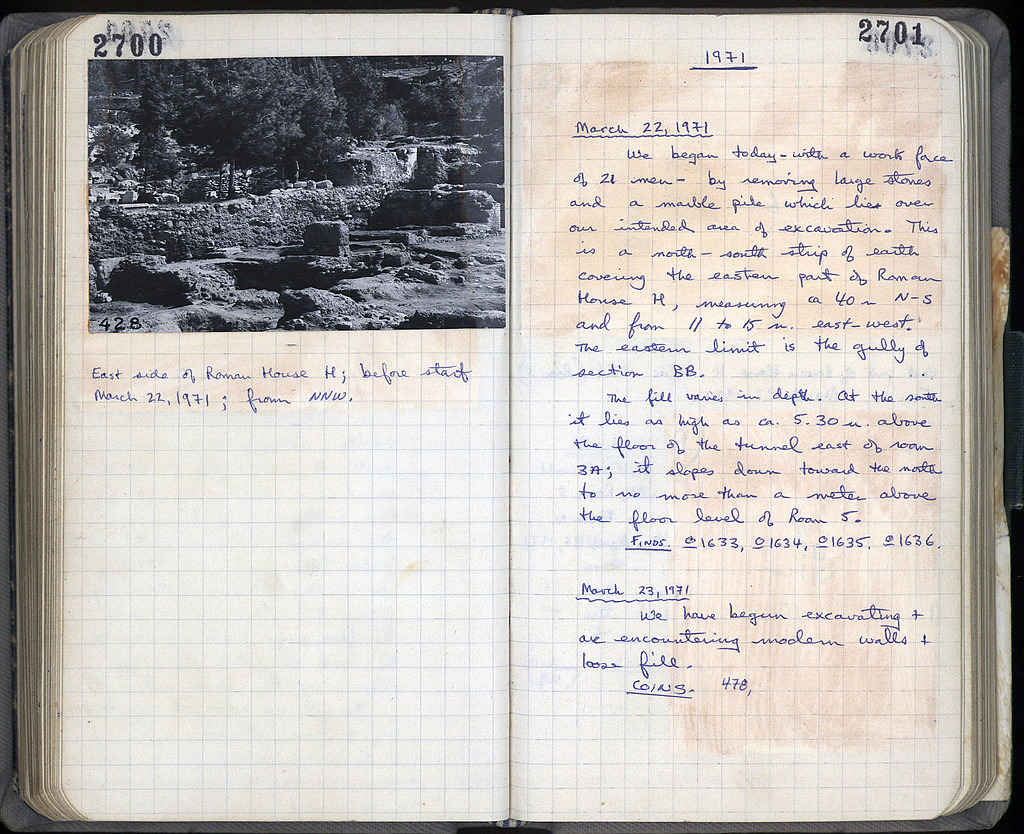 2700
428
East side of Roman House H; before start
March 22, 1971; from NNW.
2701
1971
March 22, 1971
We began today - with a work force
of 21 men - by removing large stones
and a marble pile which lies over
our intended area of excavation. This
is a north-south strip of earth
covering the eastern part of Roman
House H, measuring ca 40 m N-S
and from 11 to 15 m. east-west.
The eastern limit is the gully of
section BB.
The fill varies in depth. At the south
it lies as high as ca. 5.30 m. above
the floor of the tunnel east of room
3A; it slopes down toward the north
to no more than a meter above
the floor level of Room 5.
FINDS. 1633, 1634, 1635. 1636.
March 23, 1971
We have begun excavating +
are encountering modern walls +
loose fill.
COINS. 478,